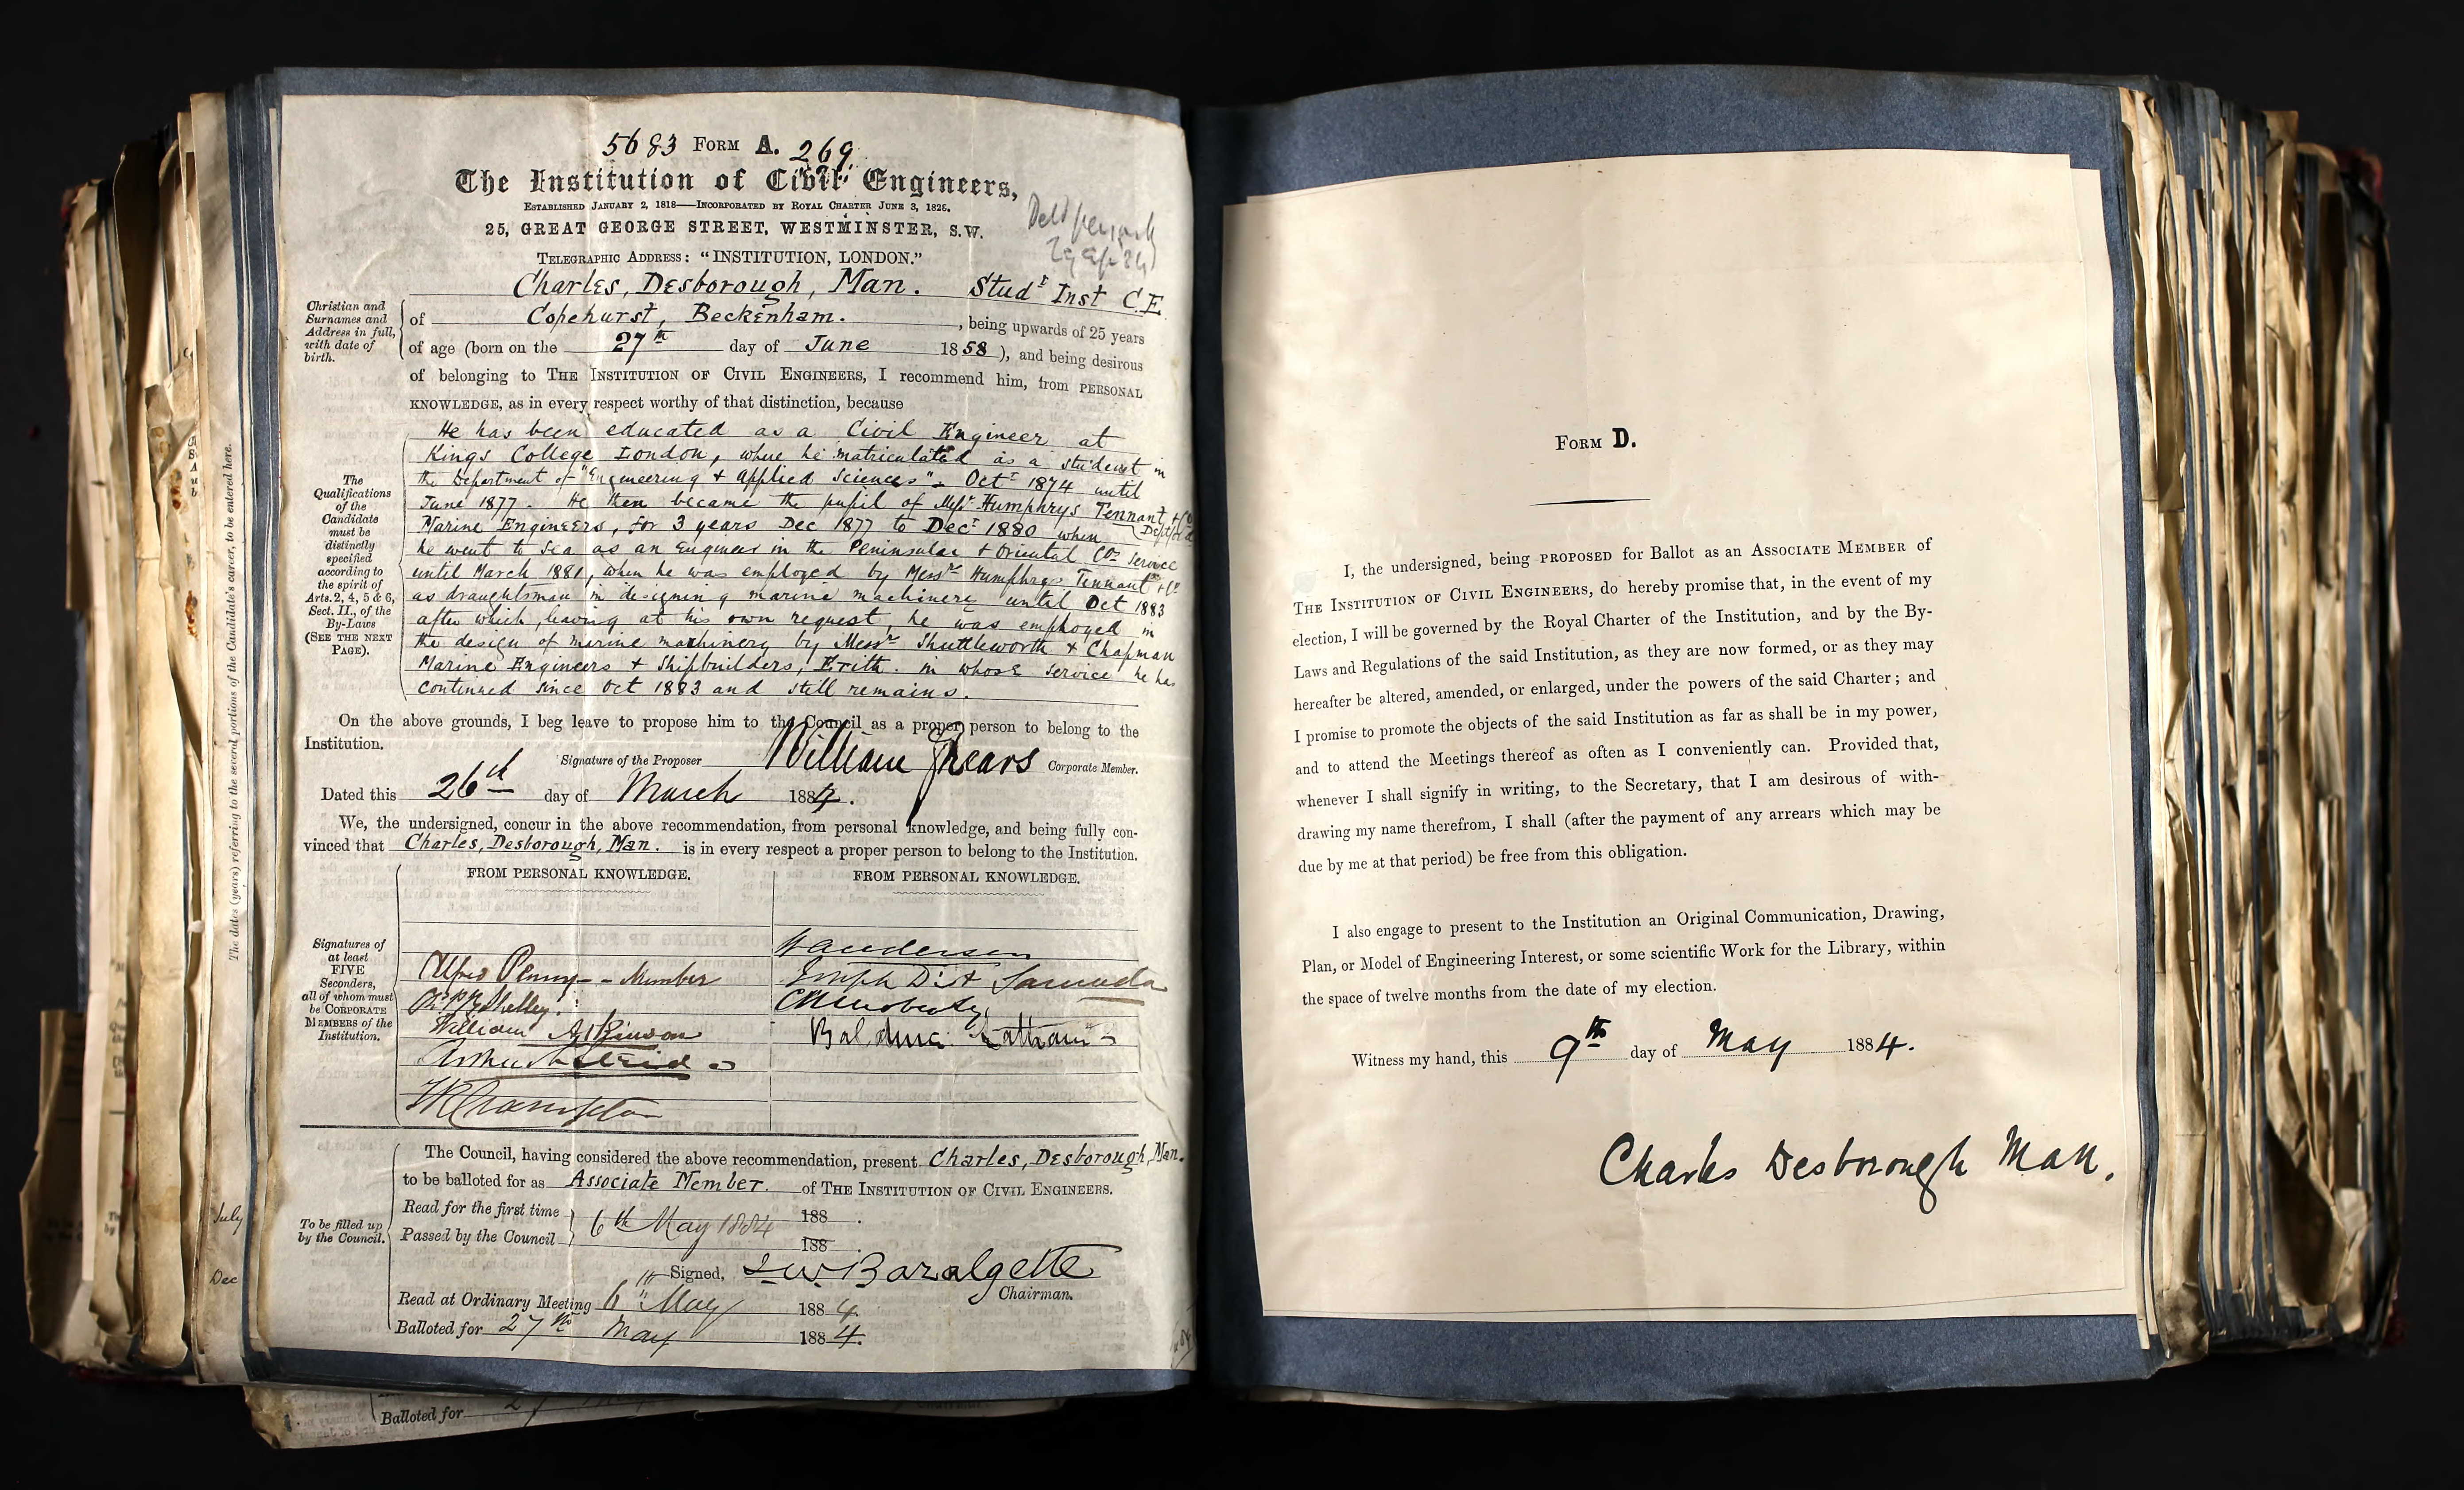 5683 FORM A. 269
The Institution of Civil Engineers,
ESTABLISHED JANUARY 2, 1818—INCORPORATED BY ROYAL CHARTER JUNE 3, 1828.
25, GREAT GEORGE STREET, WESTMINSTER, S.W.
TELEGRAPHIC ADDRESS: "INSTITUTION, LONDON."
Christian and
Surnames and
Address in full,
with date of
birth.
Charles, Desborough, Man. Studt Inst C.E
of Copehurst, Beckenham. , being upwards of 25 years
of age (born on the 27th day of June 1858), and being desirous
of belonging to THE INSTITUTION OF CIVIL ENGINEERS, I recommend him, from PERSONAL
KNOWLEDGE, as in every respect worthy of that distinction, because
The
Qualifications
of the
Candidate
must be
distinctly
specified
according to
the spirit of
Arts. 2, 4, 5 & 6,
Sect. II., of the
By-Laws
(SEE THE NEXT
PAGE).
He has been educated as a Civil Engineer at
Kings College London, where he matriculated as a student in
the Department of "Engineering & Applied Sciences". Octr 1874 until
June 1877. He then became the pupil of Messrs Humphrys Tennant & Co
Marine Engineers, for 3 years Dec 1877 to Decr 1880 when
he went to sea as an Engineer in the Peninsular & Oriental Cos service
until March 1881, when he was employed by Messrs Humphrys Tennant & Co
as draughtsman in designing marine machinery until Oct 1883
after which, leaving at his own request, he was employed in
the design of marine machinery by Messrs Shuttleworth & Chapman
Marine Engineers & Shipbuilders, Erith. in whose service he has
continued since Oct 1883 and still remains.
On the above grounds, I beg leave to propose him to the Council as a proper person to belong to the
Institution.
Signature of the Proposer William Shears Corporate Member.
Dated this 26th day of March 1884.
We, the undersigned, concur in the above recommendation, from personal knowledge, and being fully con-
vinced that Charles, Desborough, Man. is in every respect a proper person to belong to the Institution.
FROM PERSONAL KNOWLEDGE. FROM PERSONAL KNOWLEDGE.
Signatures of
at least
FIVE
Seconders,
all of whom must
be CORPORATE
MEMBERS of the
Institution.
W Anderson
Alfred Penny - Member
Samuda
Shelley.
William Atkinson
Baldwin Latham
The Council, having considered the above recommendation, present Charles, Desborough, Man.
to be balloted for as Associate Member. of THE INSTITUTION OF CIVIL ENGINEERS.
To be filled up
by the Council.
Read for the first time 188 .
6th May 1884
Passed by the Council 188 .
Signed, J W Bazalgette
Chairman.
Read at Ordinary Meeting 6th May 1884
Balloted for 27th May 1884.
Balloted for 27
The dates (years) referring to the several portions of the Candidate's career, to be entered here.
July
Dec
FORM D.
I, the undersigned, being PROPOSED for Ballot as an ASSOCIATE MEMBER of
THE INSTITUTION OF CIVIL ENGINEERS, do hereby promise that, in the event of my
election, I will be governed by the Royal Charter of the Institution, and by the By-
Laws and Regulations of the said Institution, as they are now formed, or as they may
hereafter be altered, amended, or enlarged, under the powers of the said Charter; and
I promise to promote the objects of the said Institution as far as shall be in my power,
and to attend the Meetings thereof as often as I conveniently can. Provided that,
whenever I shall signify in writing, to the Secretary, that I am desirous of with-
drawing my name therefrom, I shall (after the payment of any arrears which may be
due by me at that period) be free from this obligation.
I also engage to present to the Institution an Original Communication, Drawing,
Plan, or Model of Engineering Interest, or some scientific Work for the Library, within
the space of twelve months from the date of my election.
Witness my hand, this 9th day of May 1884.
Charles Desborough Man.